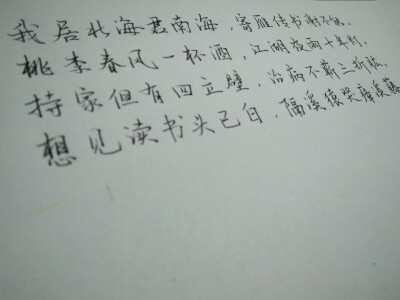 我居北海君南海，寄雁传书谢不能。
桃李春风一杯酒，江湖夜雨十年灯。
持家但有四立壁，治病不蕲三折肱。
想见读书头已白，隔溪猿哭瘴溪藤